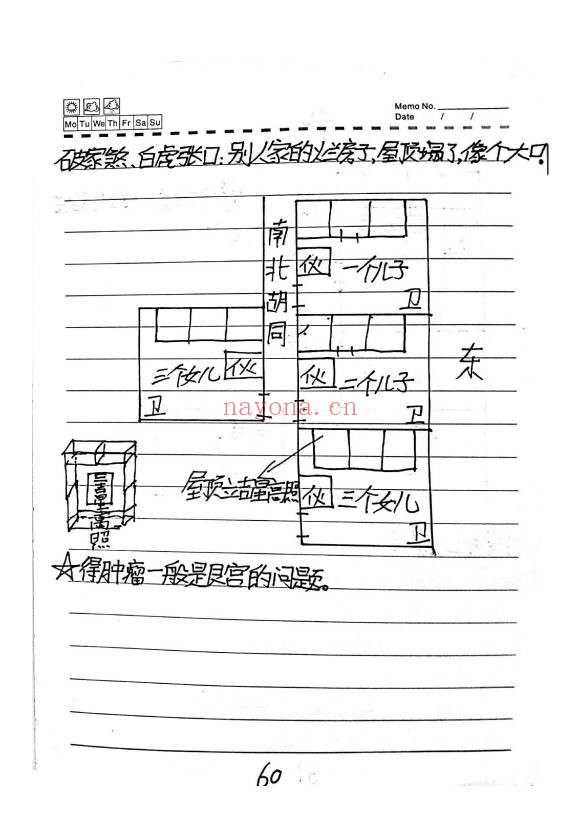 Memo No.
Mo Tu We Th Fr Sa Su
Date / /
破家煞、白虎张口:别人家的烂房子,屋顶塌了,像个大口!
南北胡同
伙 一个儿子
卫
三个女儿 伙
卫
伙 二个儿子
卫
东
nayona.cn
屋顶立吉星高照
伙 三个女儿
卫
吉星高照
☆得肿瘤一般是艮宫的问题。
60